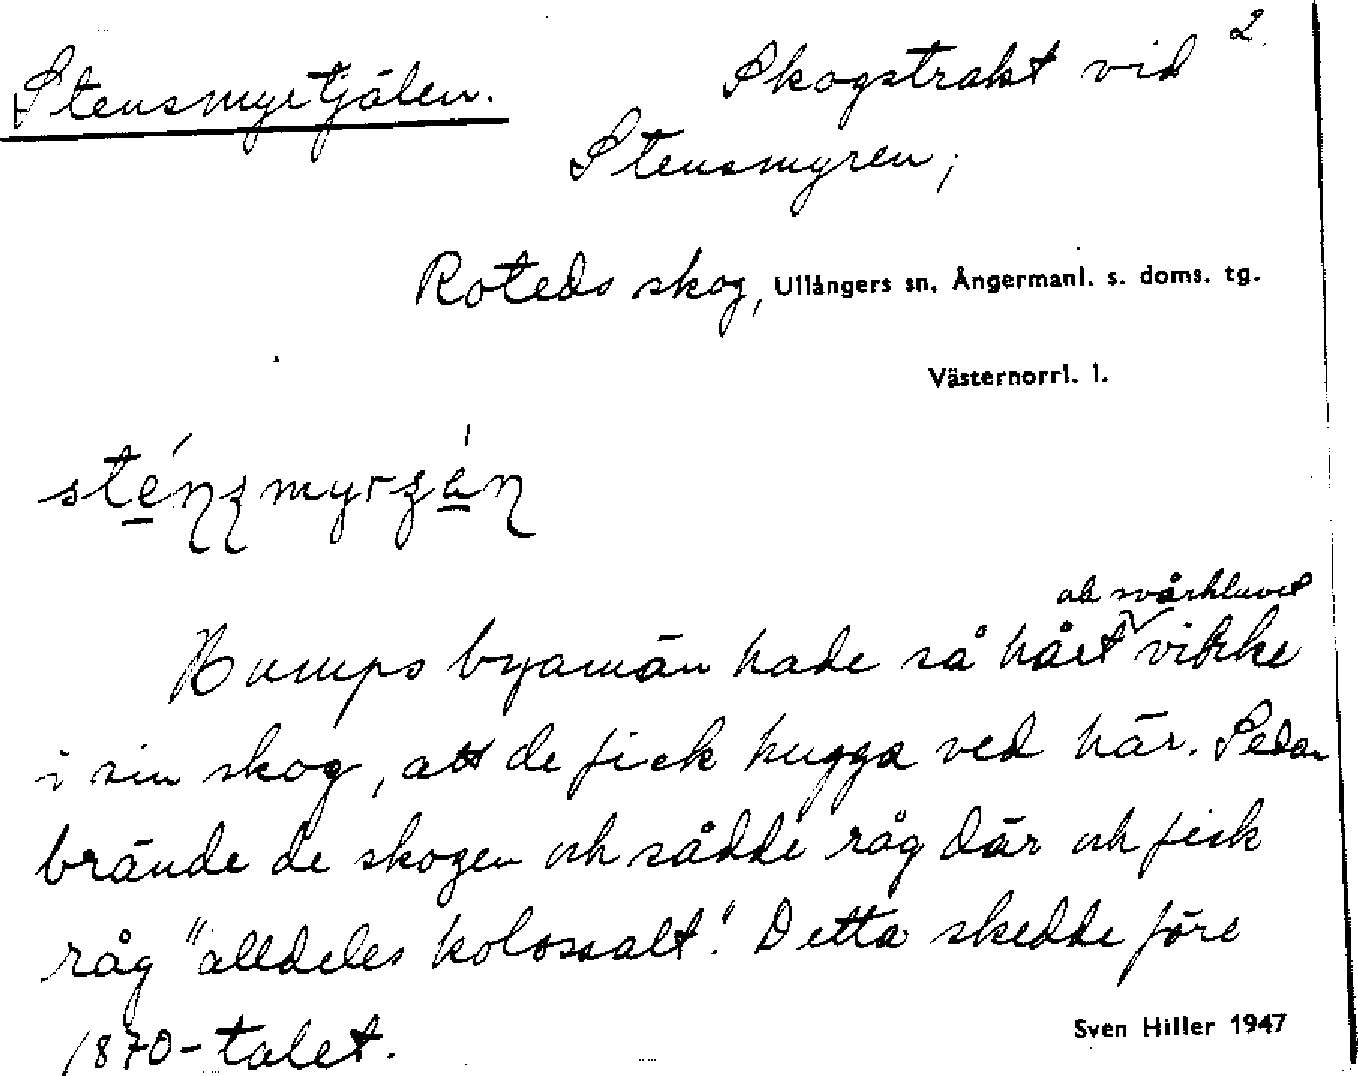 2.
Stensmyrtjälen. Skogstrakt vid
Stensmyren;
Roteds skog, Ullångers sn, Ångermanl. s. doms. tg.
Västernorrl. l.
Humps byamän hade så hårt och svårkluvet virke
i sin skog, att de fick hugga ved här. Sedan
brände de skogen och sådde råg där och fick
råg "alldeles kolossalt". Detta skedde före
1870-talet.
Sven Hiller 1947